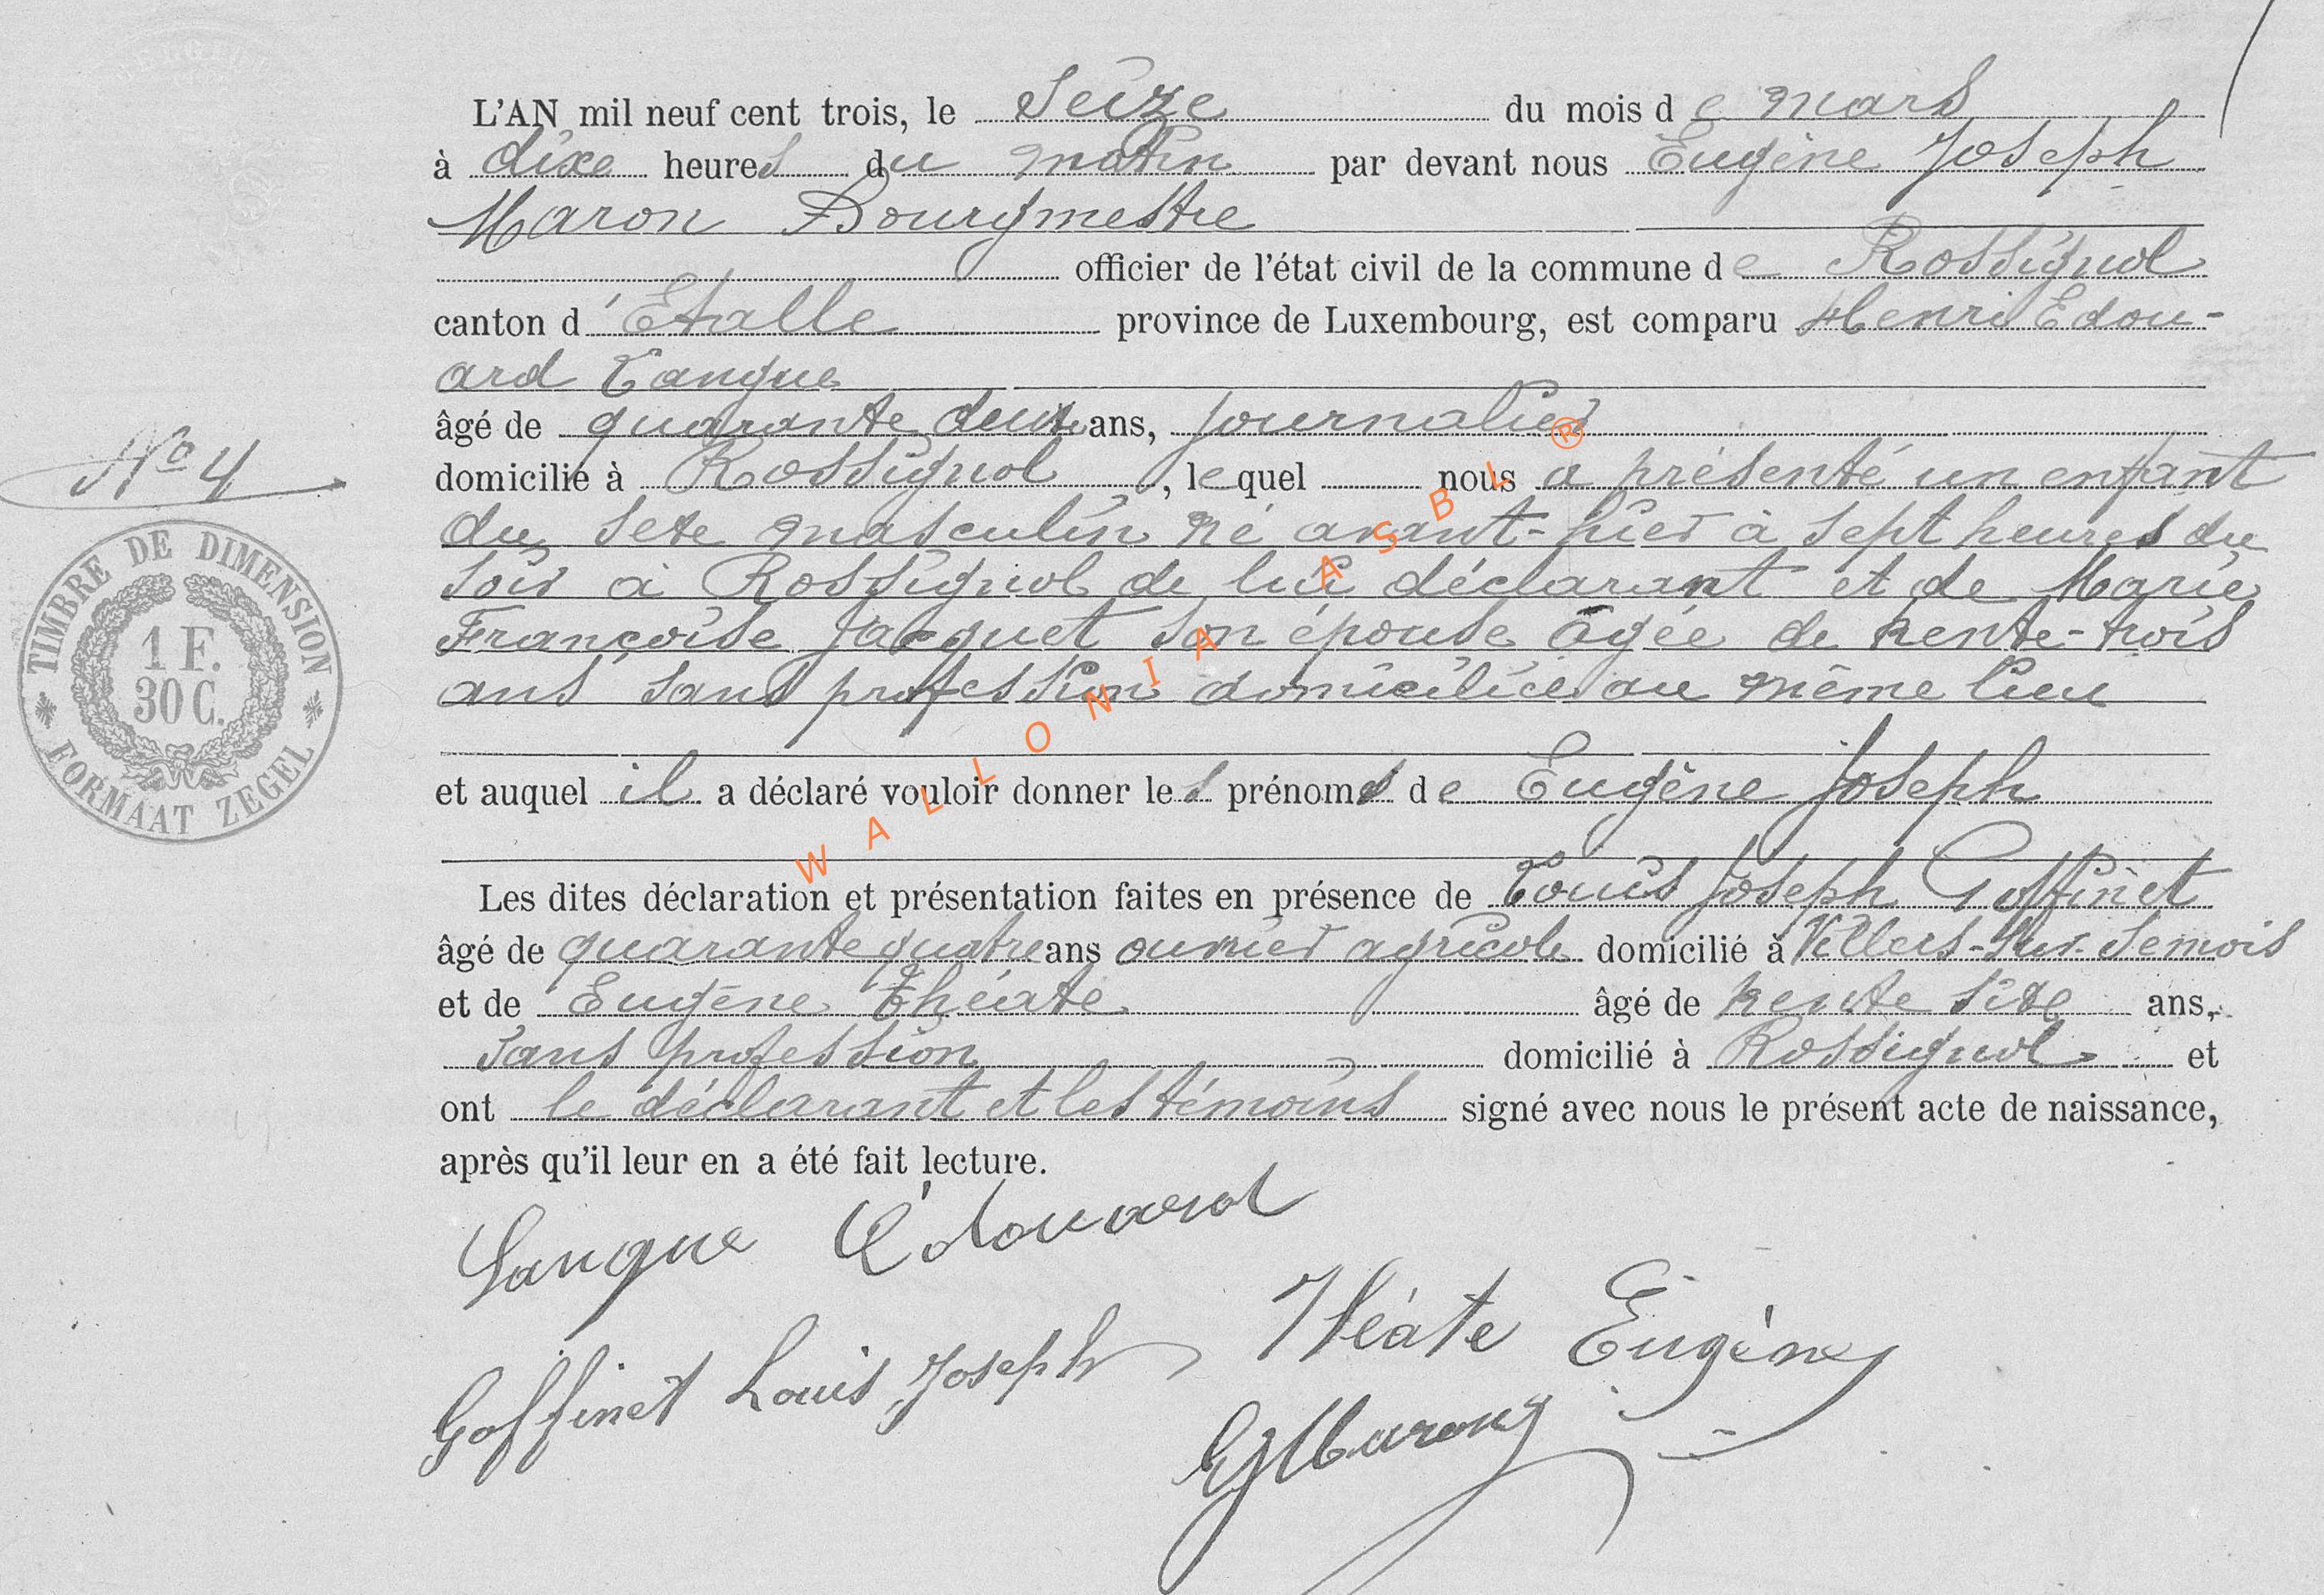 L'AN mil neuf cent trois, le Seize du mois de mars
à dixe heures du matin par devant nous Eugène Joseph
Maron Bourgmestre
officier de l'état civil de la commune de Rossignol
canton d'Etalle province de Luxembourg, est comparu Henri Edou-
ard Langue
âgé de quarante deux ans, journalier
domicilié à Rossignol, lequel nous a présenté un enfant
du sexe masculin né avant-hier à sept heures du
soir à Rossignol de lui déclarant et de Marie
Françoise Jacquet son épouse âgée de trente-trois
ans sans profession domiciliée au même lieu
et auquel il a déclaré vouloir donner les prénoms de Eugène Joseph
Les dites déclaration et présentation faites en présence de Louis Joseph Goffinet
âgé de quarante quatre ans ouvrier agricole domicilié à Villers-sur-Semois
et de Eugène Théate âgé de trente six ans,
sans profession domicilié à Rossignol et
ont le déclarant et les témoins signé avec nous le présent acte de naissance,
après qu'il leur en a été fait lecture.
Langue Edouard
Théate Eugène
Goffinet Louis Joseph
EJMaron
No 4
TIMBRE DE DIMENSION
1 F.
30 C.
FORMAAT ZEGEL
WALLONIA ASBL ®